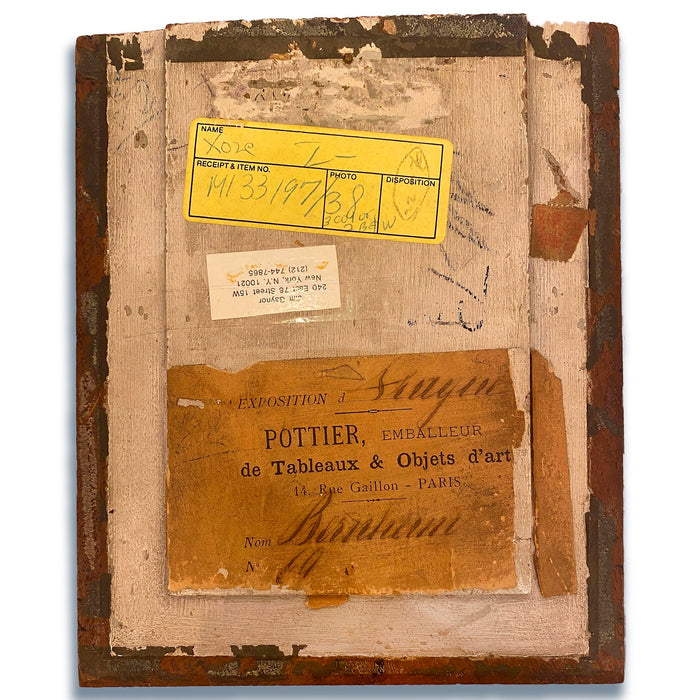 NAME
Xoze I-
RECEIPT & ITEM NO.
PHOTO
DISPOSITION
M133197/38
3 color
2 B & W
Gaynor
240 East 76 Street 15W
New York, N.Y. 10021
(212) 744-7865
EXPOSITION d Prague
POTTIER, EMBALLEUR
de Tableaux & Objets d'art
14, Rue Gaillon - PARIS
Nom Bernheim
N° 69